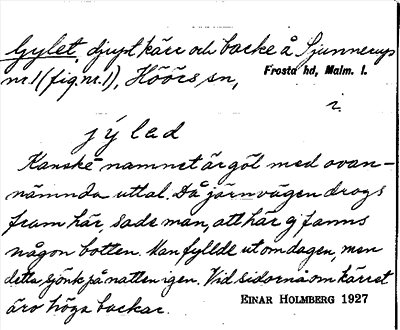 Gylet, djupt kärr och backe å Sjunnerup
nr. 1 (fig. nr. 1), Höörs sn,
Frosta hd, Malm. l.
i.
jýlad
Kanske namnet är göl med ovan-
nämnda uttal. Då järnvägen drogs
fram här, sade man, att här ej fanns
någon botten. Man fyllde ut om dagen, men
detta sjönk på natten igen. Vid sidorna om kärret
äro höga backar.
EINAR HOLMBERG 1927